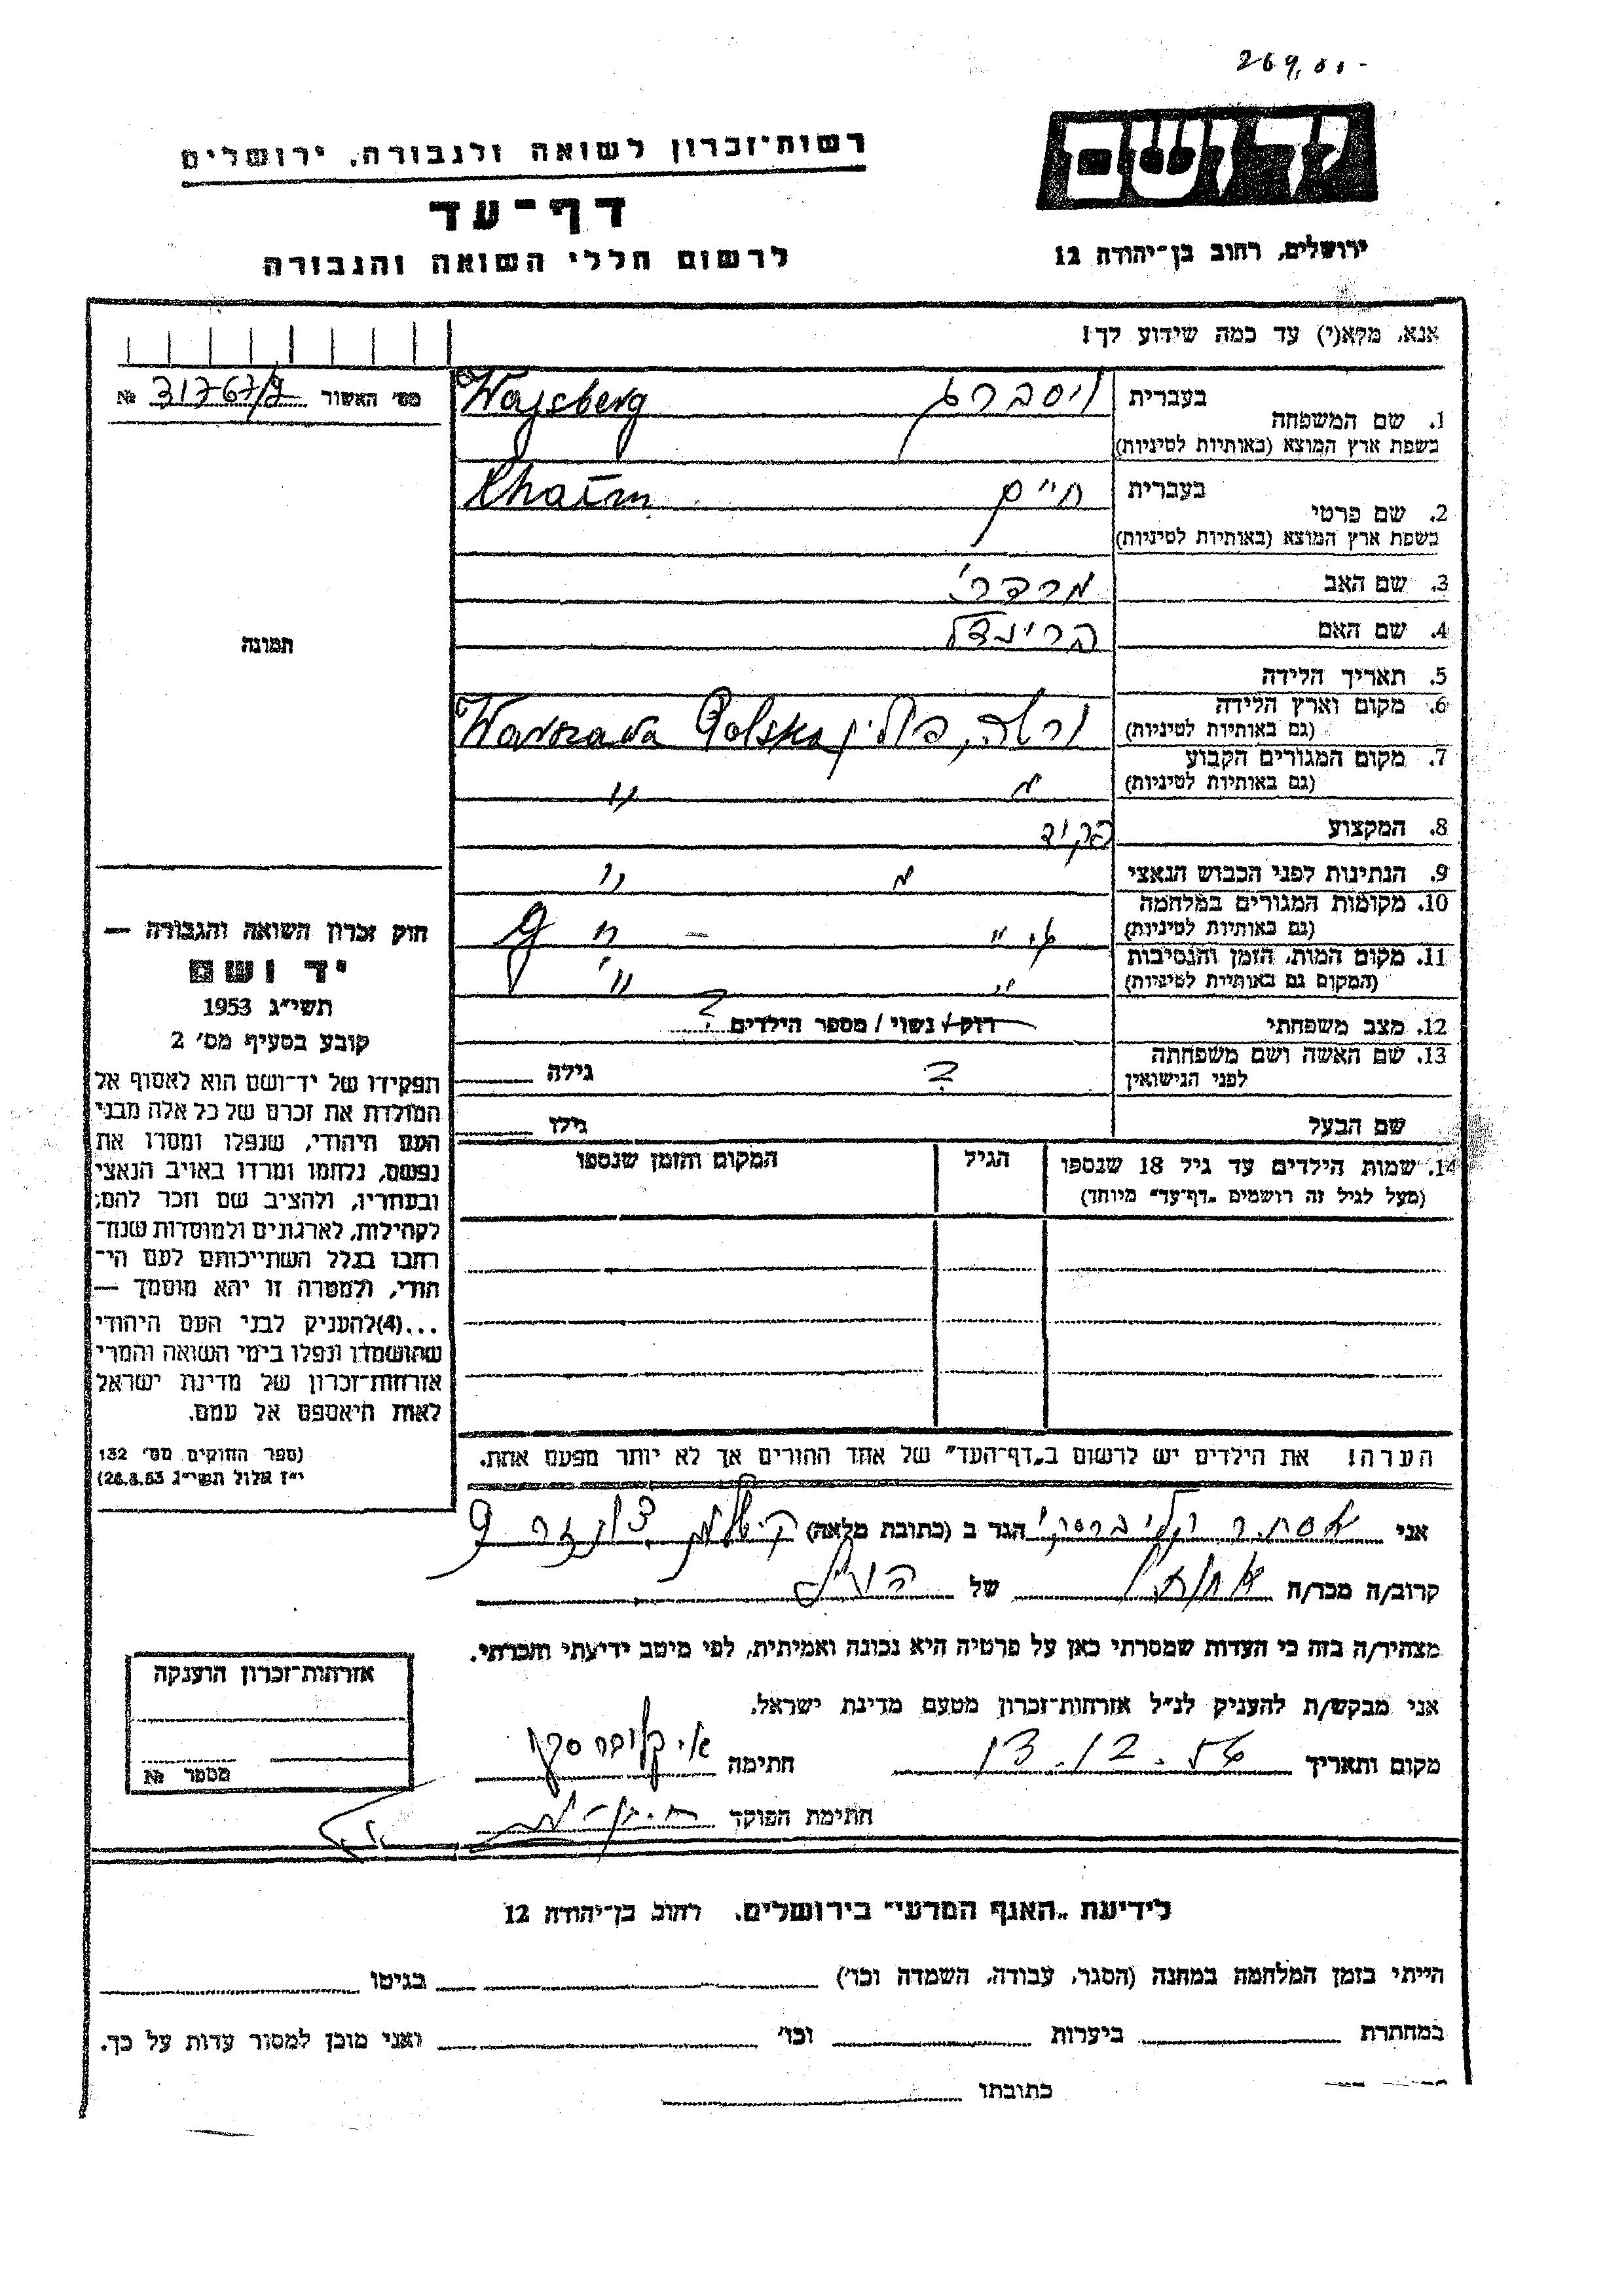 רשות־זכרון לשואה ולגבורה, ירושלים
דף־עד
לרשום חללי השואה והגבורה
יד ושם
ירושלים, רחוב בן־יהודה 12
אנא, מלא(י) עד כמה שידוע לך!
מס׳ האשור № 31767/9
1. שם המשפחה
בעברית
ויסברג
בשפת ארץ המוצא (באותיות לטיניות)
Wajsberg
2. שם פרטי
בעברית
חיים
בשפת ארץ המוצא (באותיות לטיניות)
Chaim
3. שם האב מרדכי
4. שם האם
5. תאריך הלידה
6. מקום וארץ הלידה ורשה, פולין Warszawa Polska
(גם באותיות לטיניות)
7. מקום המגורים הקבוע
(גם באותיות לטיניות)
8. המקצוע פקיד
9. הנתינות לפני הכבוש הנאצי
10. מקומות המגורים במלחמה
(גם באותיות לטיניות)
11. מקום המות, הזמן והנסיבות
(המקום גם באותיות לטיניות)
12. מצב משפחתי רוק / נשוי / מספר הילדים ?
13. שם האשה ושם משפחתה ? גילה
לפני הנישואין
שם הבעל גילו
14. שמות הילדים עד גיל 18 שנספו הגיל המקום והזמן שנספו
(מעל לגיל זה רושמים „דף־עד״ מיוחד)
הערה! את הילדים יש לרשום ב„דף־העד״ של אחד ההורים אך לא יותר מפעם אחת.
תמונה
חוק זכרון השואה והגבורה —
יד ושם
תשי״ג 1953
קובע בסעיף מס׳ 2
תפקידו של יד־ושם הוא לאסוף אל
המולדת את זכרם של כל אלה מבני
העם היהודי, שנפלו ומסרו את
נפשם, נלחמו ומרדו באויב הנאצי
ובעוזריו, ולהציב שם וזכר להם,
לקהילות, לארגונים ולמוסדות שנח־
רבו בגלל השתייכותם לעם הי־
הודי, ולמטרה זו יהא מוסמך —
...(4) להעניק לבני העם היהודי
שהושמדו ונפלו בימי השואה והמרי
אזרחות־זכרון של מדינת ישראל
לאות היאספם אל עמם.
(ספר החוקים מס׳ 132
י״ז אלול תשי״ג 28.8.53)
אני אסתר הגר ב (כתובת מלאה)
קרוב/ה מכר/ה של
מצהיר/ה בזה כי העדות שמסרתי כאן על פרטיה היא נכונה ואמיתית, לפי מיטב ידיעתי והכרתי.
אני מבקש/ת להעניק לנ״ל אזרחות־זכרון מטעם מדינת ישראל.
מקום ותאריך 13.12.56 חתימה
חתימת הפוקד
אזרחות־זכרון הוענקה
מספר №
לידיעת „האגף המדעי״ בירושלים, רחוב בן־יהודה 12
הייתי בזמן המלחמה במחנה (הסגר, עבודה, השמדה וכו׳) בגיטו
במחתרת ביערות וכו׳ ואני מוכן למסור עדות על כך.
כתובתו